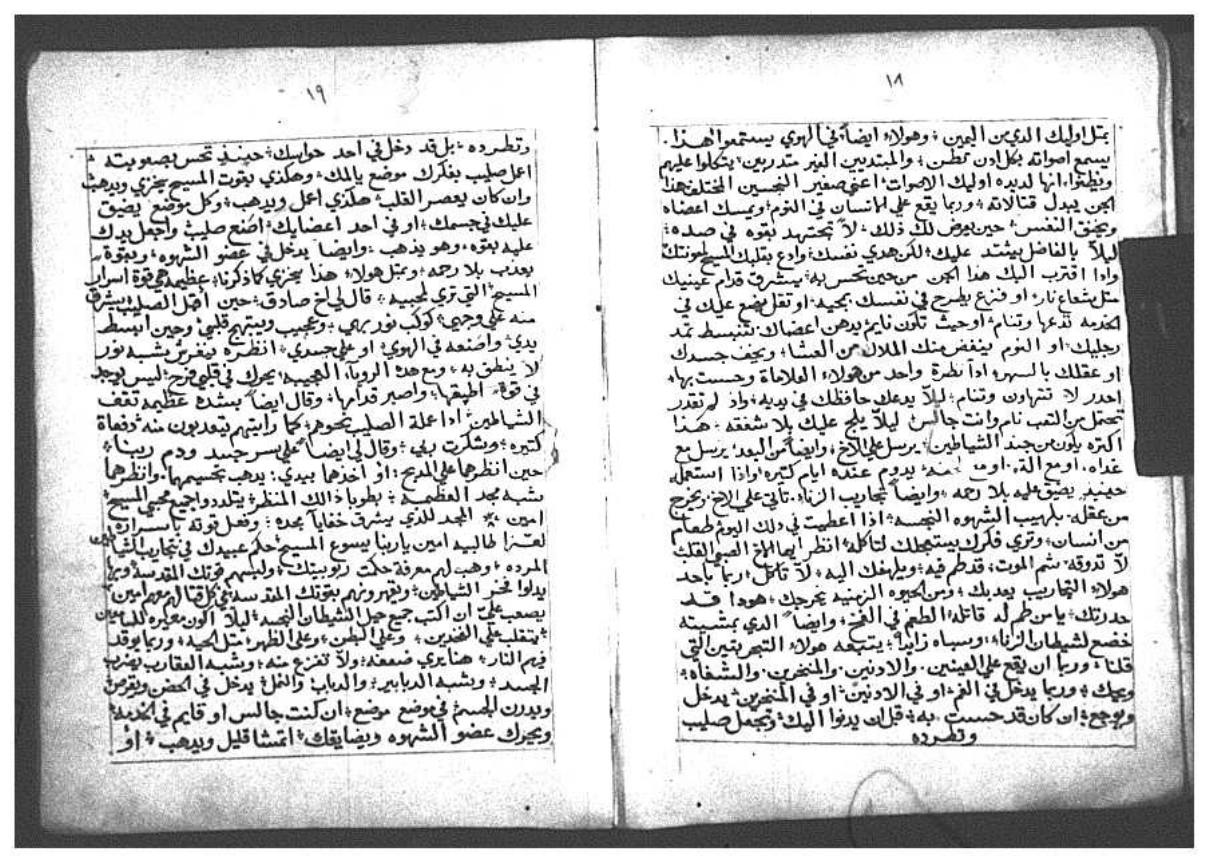 ١٨
بمثل اوليك الدي من اليمين ؛ وهولاء ايضاً في الهوي يستمعوا لهذا .
يسمع اصواته بكل ادن تطن ؛ والمبتديين الغير متدربين ؛ يتكلوا عليهم
ويظنوا . انها لديده اوليك الاصوات ؛ اعني صغير النجسين المختلف هذا
الجن يبدل قتالاته ؛ وربما يقع علي الانسان في النوم ؛ ويمسك اعضاه
ويخنق النفس ؛ حين يعرض لك ذلك ؛ لا تجتهد بقوه في صده ؛
ليلاً بالفاضل يشتد عليك ؛ لكن هدي نفسك ؛ وادع بقلبك المسيح لمعونتك
وادا اقترب اليك هدا الجن من حين تحس به ؛ يشرق قدام عينيك
مثل شعاع نار ؛ او فزع يطرح في نفسك بجيه ؛ او تقل يضع عليك في
الخدمه تدعها وتنام ؛ او حيث تكون نايم ؛ يدهن اعضاك ؛ لتنبسط تمد
رجليك ؛ او النوم ينغض منك الملال من العشا ؛ ويخف جسدك
او عقلك بالسهر ؛ ادا نظرة واحد من هولاء العلاماة وحست بها ؛
احدر لا تتهاون وتنام ؛ ليلاً يدعك حافظك في يديه ؛ واذ لم تقدر
تحتمل من التعب نام وانت جالس ليلاً يلج عليك بلا شفقه ؛ هدا
اكتره يكون من جند الشياطين ؛ يرسل علي الاخ ؛ وايضاً من البعد ؛ يرسل مع
غداه . او مع الة . او مع يدوم عنده ايام كتيره ؛ وادا استعمله
حينيد يضيق عليه بلا رحمه ؛ وايضاً تجاريب الزنا ؛ تاتي علي الاخ . ويخرج
من عقله . بلهيب الشهوه النجسه ؛ اذا اعطيت في دلك اليوم طعام
من انسان ؛ وتري فكرك يستعجلك لتاكله ؛ انظر ايها الاخ الصبي القلب
لا تدوقه ؛ سم الموت ؛ قد طم فيه ؛ ويلهفك اليه ؛ لا تاكل ؛ ربما باحد
هولاء التجاريب يعدبك ؛ ومن الحيوه الزهنيه يخرجك ؛ هودا قد
حدرتك ؛ يا من طم له قاتله ؛ الطعم في الفخ ؛ وايضاً الدي بمشيته
خضع لشيطان الزنا ؛ وسباه زايداً ؛ يتبعه هولاء التجربتين التي
قلنا ؛ وربما ان يقع علي العينين . والادنين . والمنخرين . والشفاه ؛
ويحك ؛ وربما يدخل في الفم ؛ او في الادنين ؛ او في المنخرين ؛ يدخل
ويوجع ؛ ان كان قد حست به ؛ قبل ان يدنوا اليك ؛ وتجعل صليب
وتطرده
١٩
وتطرده ؛ بل قد دخل في احد حواسك ؛ حينيد تحس بصعوبته ؛
اعمل صليب بفكرك موضع يالمك ؛ وهكذي بقوت المسيح يخزي ويدهب
وان كان يعصر القلب ؛ هكذي اعمل ويدهب ؛ وكل موضع يضيق
عليك في جسمك ؛ او في احد اعضايك ؛ اصنع صليب واجعل يدك
عليه بقوه ؛ وهو يدهب ؛ وايضاً يدخل في عضو الشهوه ؛ وبقوة
يعدب بلا رحمه ؛ وبمثل هولاء هدا يخزي كما ذكرنا ؛ عظيمه هي قوة اسرار
المسيح ؛ التي تري لمحبيه ؛ قال لي اخ صادق ؛ حين اقبل الصليب يشرق
منه علي وجهي ؛ كوكب نور بهي ؛ وعجيب ويبتهج قلبي ؛ وحين ابسط
يدي ؛ واصنعه في الهوي ؛ او علي جسدي ؛ انظره يتغرس بشبه نور
لا ينطق به ؛ ومع هده الرويا العجيبه ؛ يحرك في قلبي فرح ؛ ليس يوجد
في قوة اطيقها ؛ واصبر قدامها ؛ وقال ايضاً بشده عظيمه تقف
الشياطين ؛ ادا عملة الصليب نحوهم ؛ كما رايتهم يتعدبون منه دفعاة
كتيره ؛ وشكرت ربي ؛ وقال لي ايضاً علي سر جسد ودم ربنا ؛
حين انظرهما علي المدبح ؛ او اخدهما بيدي ؛ يدهب تجسيمها . وانظرهما
بشبه مجد العظمه ؛ يطوبا دالك المنظر ؛ يتلددوا جميع محبي المسيح ؛
امين ؛ المجد للدي يشرق خفاياً مجده ؛ وفعل قوته باسراره
لعزا طالبيه امين يا ربنا يسوع المسيح ؛ حكم عبيدك في تجاريب الشياطين
المرده ؛ وهب لهم معرفة حكمت ربوبيتك ؛ وليسهم قوتك المقدسه ؛ وبها
يدلوا فخر الشياطين ؛ وتقهروتهم بقوتك المقدسه ؛ في كل قتالهم معهم امين
يصعب علي ان اكتب جميع حيل الشيطان النجسه ؛ ليلاً اكون معيره للسامعين
يتقلب علي الفخدين ؛ وعلي البطن ؛ وعلي الظهر ؛ مثل الحيه ؛ وربما يوقد
فيهم النار ؛ هنا يري ضعفه ؛ ولا تفزع منه ؛ وبشبه العقارب يضرب
الجسد ؛ وبشبه الدبابير ؛ والدباب ؛ والنمل ؛ يدخل في الحضن ويقرص
ويدرن الجسم ؛ في موضع موضع ؛ ان كنت جالس او قايم في الخدمه ؛
ويحرك عضو الشهوه ويضايقك ؛ اتمشا قليل ويدهب ؛ او